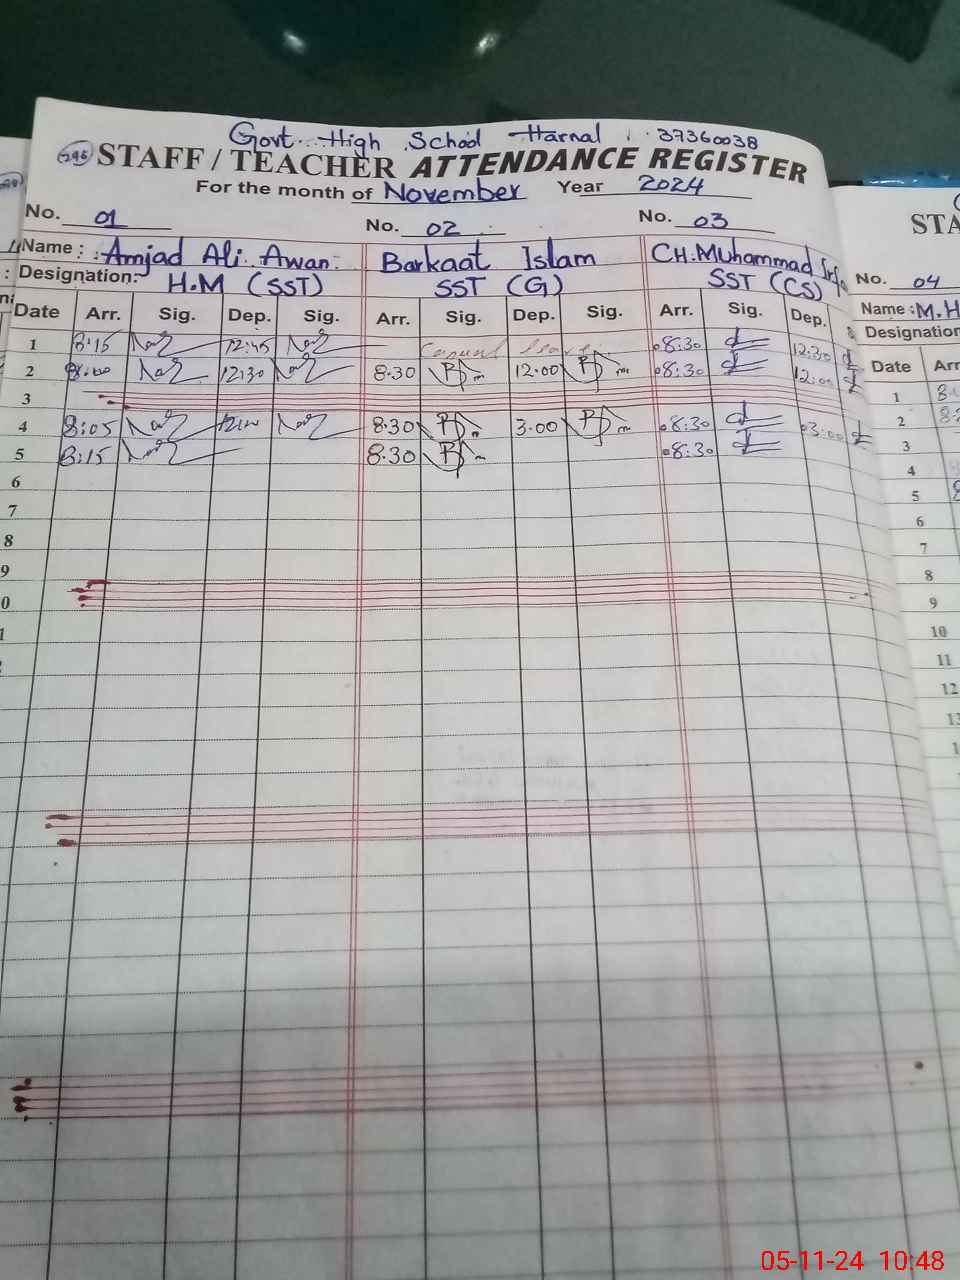 Govt. High School Harnal 37360038
STAFF / TEACHER ATTENDANCE REGISTER
For the month of November Year 2024
No. 01 No. 02 No. 03
Name : Amjad Ali Awan Barkaat Islam CH. Muhammad
Designation: H.M (SST) SST (G) SST (CS)
Date Arr. Sig. Dep. Sig. Arr. Sig. Dep. Sig. Arr. Sig. Dep.
1 8:15 12:45 Casual leave 08:30 12:30
2 8:00 12:30 8:30 12:00 08:30 12:00
3
4 8:05 8:30 3:00 08:30 03:00
5 8:15 8:30 08:30
6
7
8
9
0
1
STA
No. 04
Name : M.H
Designation
Date Arr
1
2
3
4
5
6
7
8
9
10
11
12
05-11-24 10:48